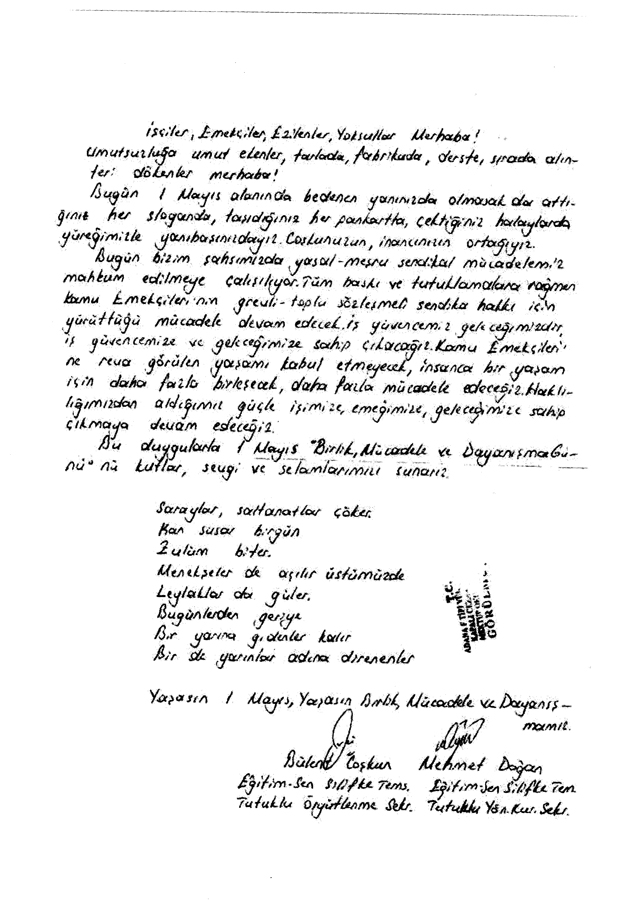 İşçiler, Emekçiler, Ezilenler, Yoksullar Merhaba!
Umutsuzluğa umut ekenler, tarlada, fabrikada, derste, sırada alın-
teri dökenler merhaba!
Bugün 1 Mayıs alanında bedenen yanınızda olmasak da attı-
ğınız her sloganda, taşıdığınız her pankartta, çektiğiniz halaylarda
yüreğimizle yanıbaşınızdayız. Coşkunuzun, inancınızın ortağıyız.
Bugün bizim şahsımızda yasal-meşru sendikal mücadelemiz
mahkum edilmeye çalışılıyor. Tüm baskı ve tutuklamalara rağmen
Kamu Emekçileri'nin grevli-toplu sözleşmeli sendika hakkı için
yürüttüğü mücadele devam edecek. İş güvencemiz geleceğimizdir,
iş güvencemize ve geleceğimize sahip çıkacağız. Kamu Emekçileri'
ne reva görülen yaşamı kabul etmeyecek, insanca bir yaşam
için daha fazla birleşecek, daha fazla mücadele edeceğiz. Haklı-
lığımızdan aldığımız güçle işimize, emeğimize, geleceğimize sahip
çıkmaya devam edeceğiz.
Bu duygularla 1 Mayıs "Birlik, Mücadele ve Dayanışma Gü-
nü"nü kutlar, sevgi ve selamlarımızı sunarız.
Saraylar, saltanatlar çöker.
Kan susar birgün
Zulüm biter.
Menekşeler de açılır üstümüzde
Leylaklar da güler.
Bugünlerden geriye
Bir yarına gidenler kalır
Bir de yarınlar adına direnenler
T.C.
GÖRÜLDÜ
Yaşasın 1 Mayıs, Yaşasın Birlik, Mücadele ve Dayanış-
mamız.
Bülent Coşkun Mehmet Doğan
Eğitim-Sen Silifke Tems. Eğitim-Sen Silifke Tem.
Tutuklu Örgütlenme Sekr. Tutuklu Yön. Kur. Sekr.